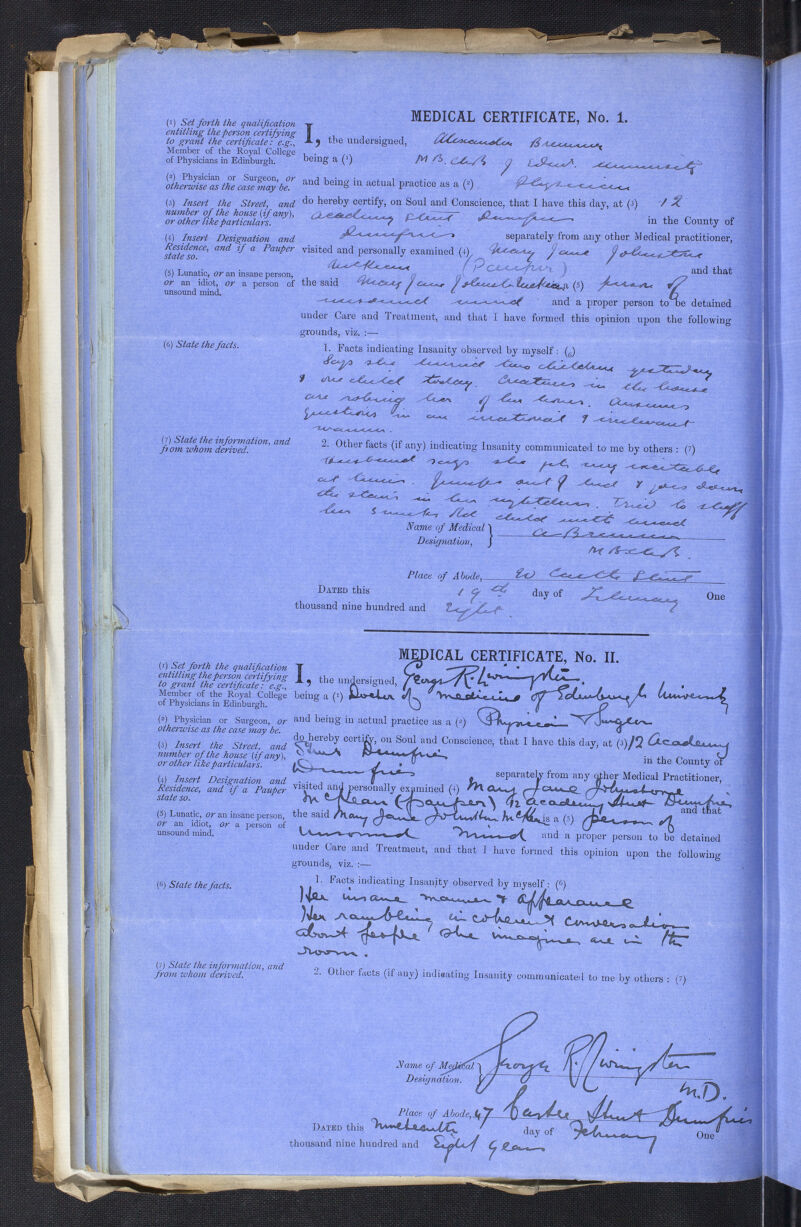 MEDICAL CERTIFICATE, No. 1.
(1) Set forth the qualification
entitling the person certifying
to grant the certificate: e.g.,
Member of the Royal College
of Physicians in Edinburgh.
(2) Physician or Surgeon, or
otherwise as the case may be.
(3) Insert the Street, and
number of the house (if any),
or other like particulars.
(4) Insert Designation and
Residence, and if a Pauper
state so.
(5) Lunatic, or an insane person,
or an idiot, or a person of
unsound mind.
I, the undersigned, Alexander Bremner
being a (1) M B. Ch B of Edin. University
and being in actual practice as a (2) Physician
do hereby certify, on Soul and Conscience, that I have this day, at (3) 12
Academy Street Dumfries in the County of
Dumfries separately from any other Medical practitioner,
visited and personally examined (4) Mary Jane Johnstone
McKean (Pauper) and that
the said Mary Jane Johnstone McKean is a (5) person of
unsound mind and a proper person to be detained
under Care and Treatment, and that I have formed this opinion upon the following
grounds, viz. :—
(6) State the facts.
1. Facts indicating Insanity observed by myself: (6)
Says she buried two children yesterday
& one child today. Creatures in the house
are robing her of her honor. Answers
questions in an irrational & irrelevant
manner.
(7) State the information, and
from whom derived.
2. Other facts (if any) indicating Insanity communicated to me by others : (7)
Husband says she gets very excitable
at times. Jumps out of bed & goes down
the stairs in her nightdress. Tried to stuff
her 3 weeks old child with bread
Name of Medical
Designation, A Bremner
M B Ch B.
Place of Abode, Castle Street
DATED this 19th day of February One
thousand nine hundred and Eight.
MEDICAL CERTIFICATE, No. II.
(1) Set forth the qualification
entitling the person certifying
to grant the certificate: e.g.,
Member of the Royal College
of Physicians in Edinburgh.
(2) Physician or Surgeon, or
otherwise as the case may be.
(3) Insert the Street, and
number of the house (if any),
or other like particulars.
(4) Insert Designation and
Residence, and if a Pauper
state so.
(5) Lunatic, or an insane person,
or an idiot, or a person of
unsound mind.
I, the undersigned, George R. Livingston.
being a (1) Doctor of medicine of Edinburgh University
and being in actual practice as a (2) Physician & Surgeon
do hereby certify, on Soul and Conscience, that I have this day, at (3) 12 Academy
Street Dumfries in the County of
Dumfries separately from any other Medical Practitioner,
visited and personally examined (4) Mary Jane Johnstone
McKean (pauper) 12 academy Street Dumfries and that
the said Mary Jane Johnstone McKean is a (5) person of
unsound mind and a proper person to be detained
under Care and Treatment, and that I have formed this opinion upon the following
grounds, viz. :—
(6) State the facts.
1. Facts indicating Insanity observed by myself: (6)
Her insane manner & appearance
Her rambling incoherent conversation
about people she imagines are in the
room.
(7) State the information, and
from whom derived.
2. Other facts (if any) indicating Insanity communicated to me by others : (7)
Name of Medical
Designation. George R. Livingston
M.D.
Place of Abode, 47 Castle Street Dumfries
DATED this Nineteenth day of February One
thousand nine hundred and Eight years